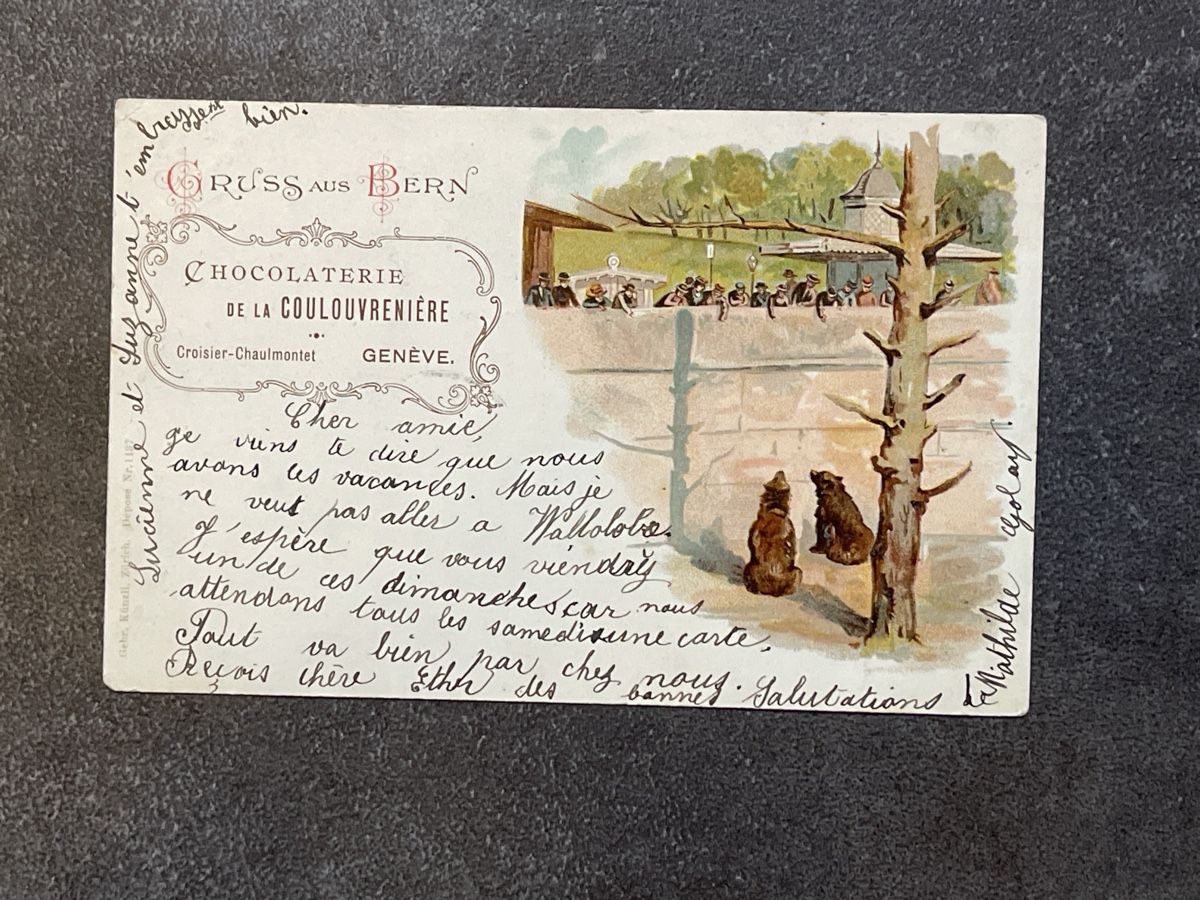 GRUSS AUS BERN
CHOCOLATERIE
DE LA COULOUVRENIÈRE
Croisier-Chaulmontet GENÈVE.
Cher amie,
je viens te dire que nous
avons les vacances. Mais je
ne veut pas aller a
J'espère que vous viendréz
un de ces dimanches car nous
attendons tous les samedis une carte.
Tout va bien par chez nous.
Reçois chère Ether des bonnes Salutations
de Mathilde Golay.
Lucienne et Suzanne t'embrassent bien.
Gebr. Künzli Zürich, Deposé Nr.